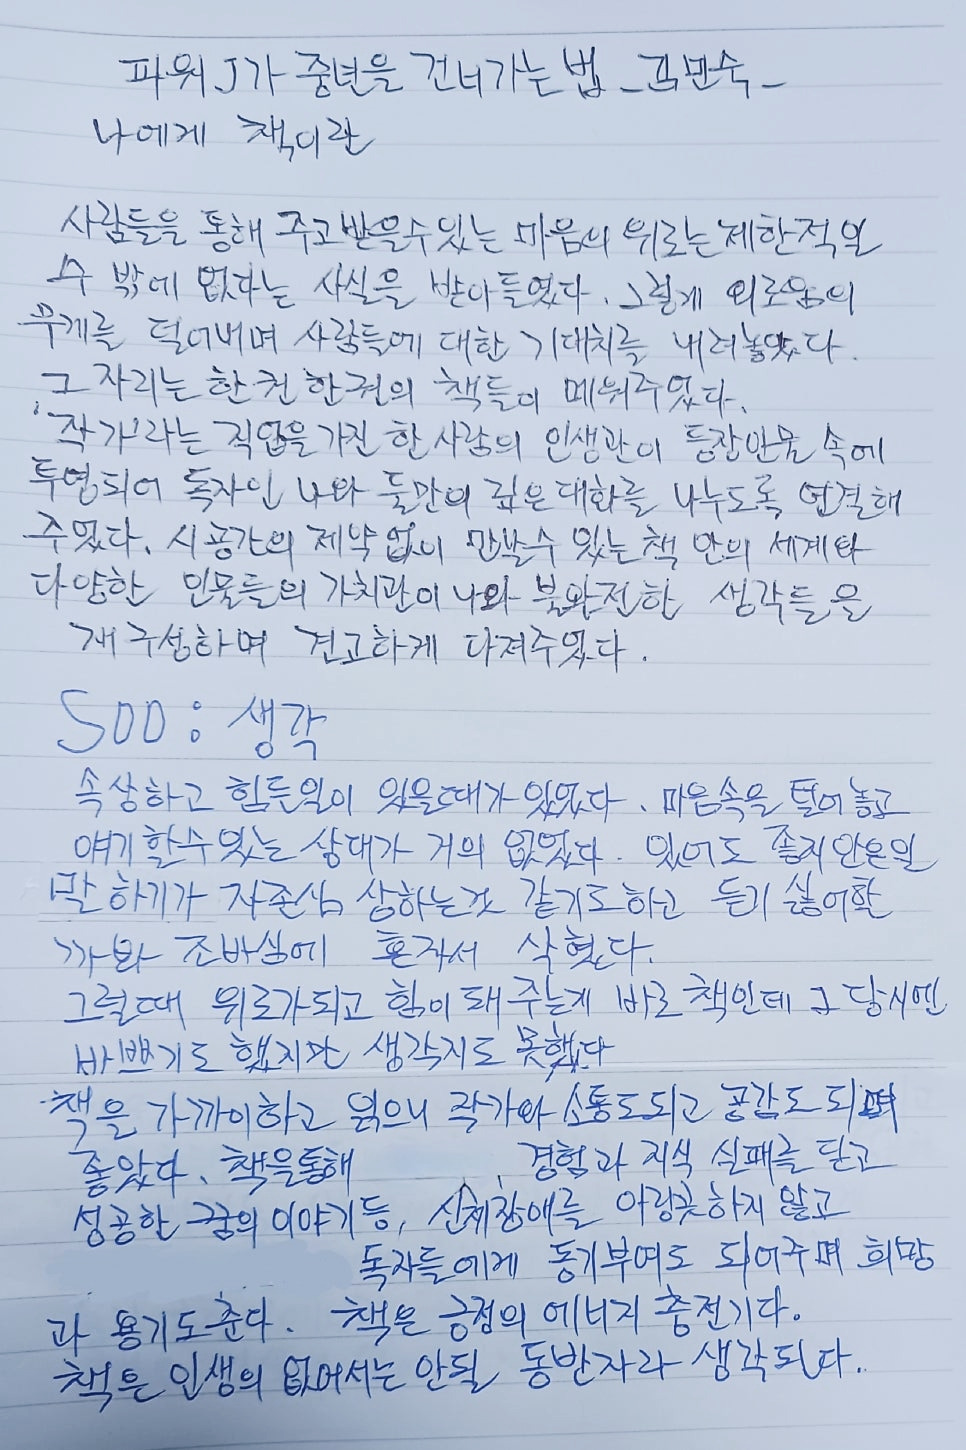 파워J가 중년을 건너가는 법 _김민숙_
나에게 책이란
사람들을 통해 주고받을수있는 마음의 위로는 제한적일
수 밖에 없다는 사실을 받아들였다. 그렇게 외로움의
무게를 덜어내며 사람들에 대한 기대치를 내려놓았다.
그 자리는 한권 한권의 책들이 메워주었다.
'작가'라는 직업을 가진 한 사람의 인생관이 등장인물 속에
투영되어 독자인 나와 둘만의 깊은 대화를 나누도록 연결해
주었다. 시공간의 제약 없이 만날수 있는 책 안의 세계와
다양한 인물들의 가치관이 나와 불완전한 생각들을
재구성하며 견고하게 다져주었다.
SOO : 생각
속상하고 힘든일이 있을때가 있었다. 마음속을 털어놓고
얘기할수있는 상대가 거의 없었다. 있어도 좋지않은일
말하기가 자존심 상하는것 같기도하고 듣기 싫어할
까봐 조바심에 혼자서 삭혔다.
그럴때 위로가되고 힘이돼 주는게 바로 책인데 그 당시엔
바쁘기도 했지만 생각지도 못했다
책을 가까이하고 읽으니 작가와 소통도되고 공감도 되며
좋았다. 책을통해 경험과 지식 실패를 딛고
성공한 꿈의 이야기 등, 신체장애를 아랑곳하지 않고
독자들에게 동기부여도 되어주며 희망
과 용기도 준다. 책은 긍정의 에너지 충전기다.
책은 인생의 없어서는 안될 동반자라 생각된다..